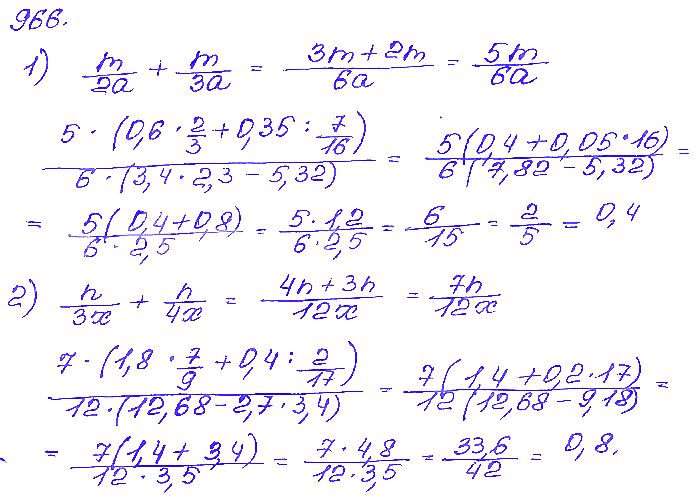 966.
1) m/2a + m/3a = (3m+2m)/6a = 5m/6a
(5 · (0,6 · 2/3 + 0,35 : 7/16))/(6 · (3,4 · 2,3 – 5,32)) = (5(0,4 + 0,05 · 16))/(6(7,82 – 5,32)) =
= (5(0,4 + 0,8))/(6 · 2,5) = (5 · 1,2)/(6 · 2,5) = 6/15 = 2/5 = 0,4
2) n/3x + n/4x = (4n + 3n)/12x = 7n/12x
(7 · (1,8 · 7/9 + 0,4 : 2/17))/(12 · (12,68 – 2,7 · 3,4)) = (7(1,4 + 0,2 · 17))/(12(12,68 – 9,18)) =
= (7(1,4 + 3,4))/(12 · 3,5) = (7 · 4,8)/(12 · 3,5) = 33,6/42 = 0,8.